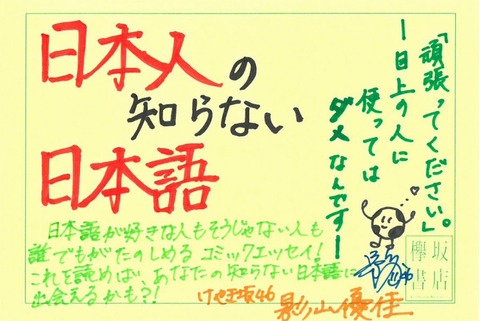 日本人の
知らない
日本語
「頑張ってください。」
ー目上の人に
使っては
ダメなんですー
日本語が好きな人もそうじゃない人も
誰でもがたのしめるコミックエッセイ!
これを読めば、あなたの知らない日本語に
出会えるかも?!
けやき坂46
影山優佳
欅坂
書店